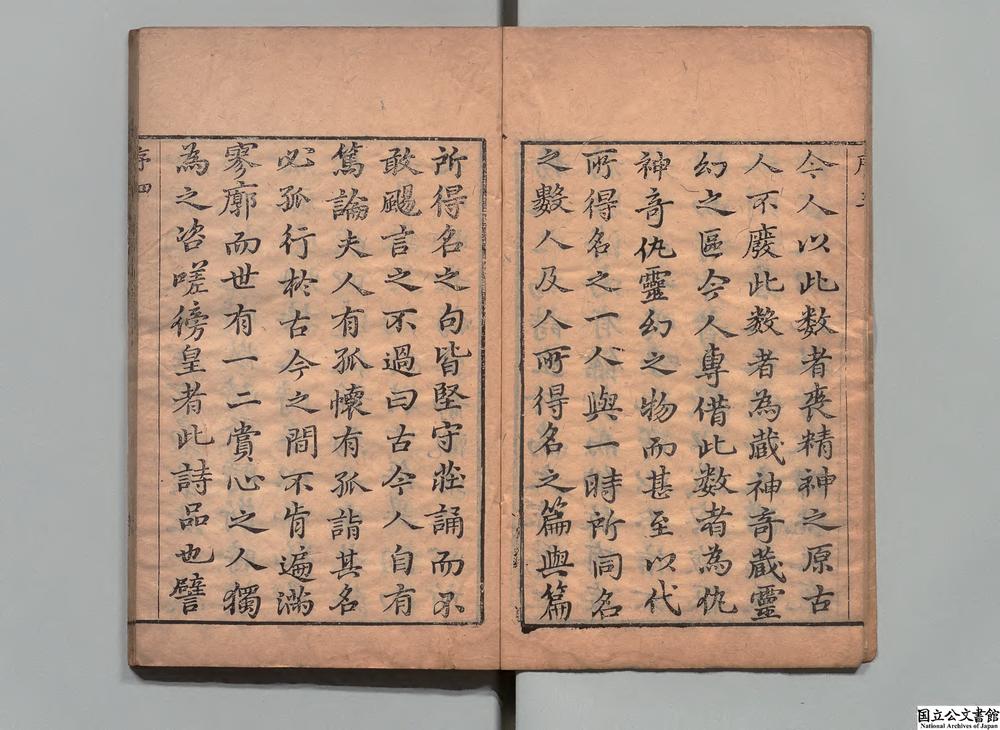 序三
今人以此数者喪精神之原古
人不廢此数者為蔵神奇蔵靈
幻之區今人專借此数者為仇
神奇仇靈幻之物而甚至以代
所得名之一人與一時所同名
之數人及人所得名之篇與篇
所得名之句皆堅守莊誦而不
敢颺言之不過曰古今人自有
篤論夫人有孤懷有孤詣其名
必孤行於古今之間不肯遍滿
寥廓而世有一二賞心之人獨
為之咨嗟徬皇者此詩品也譬
序四
国立公文書館
National Archives of Japan